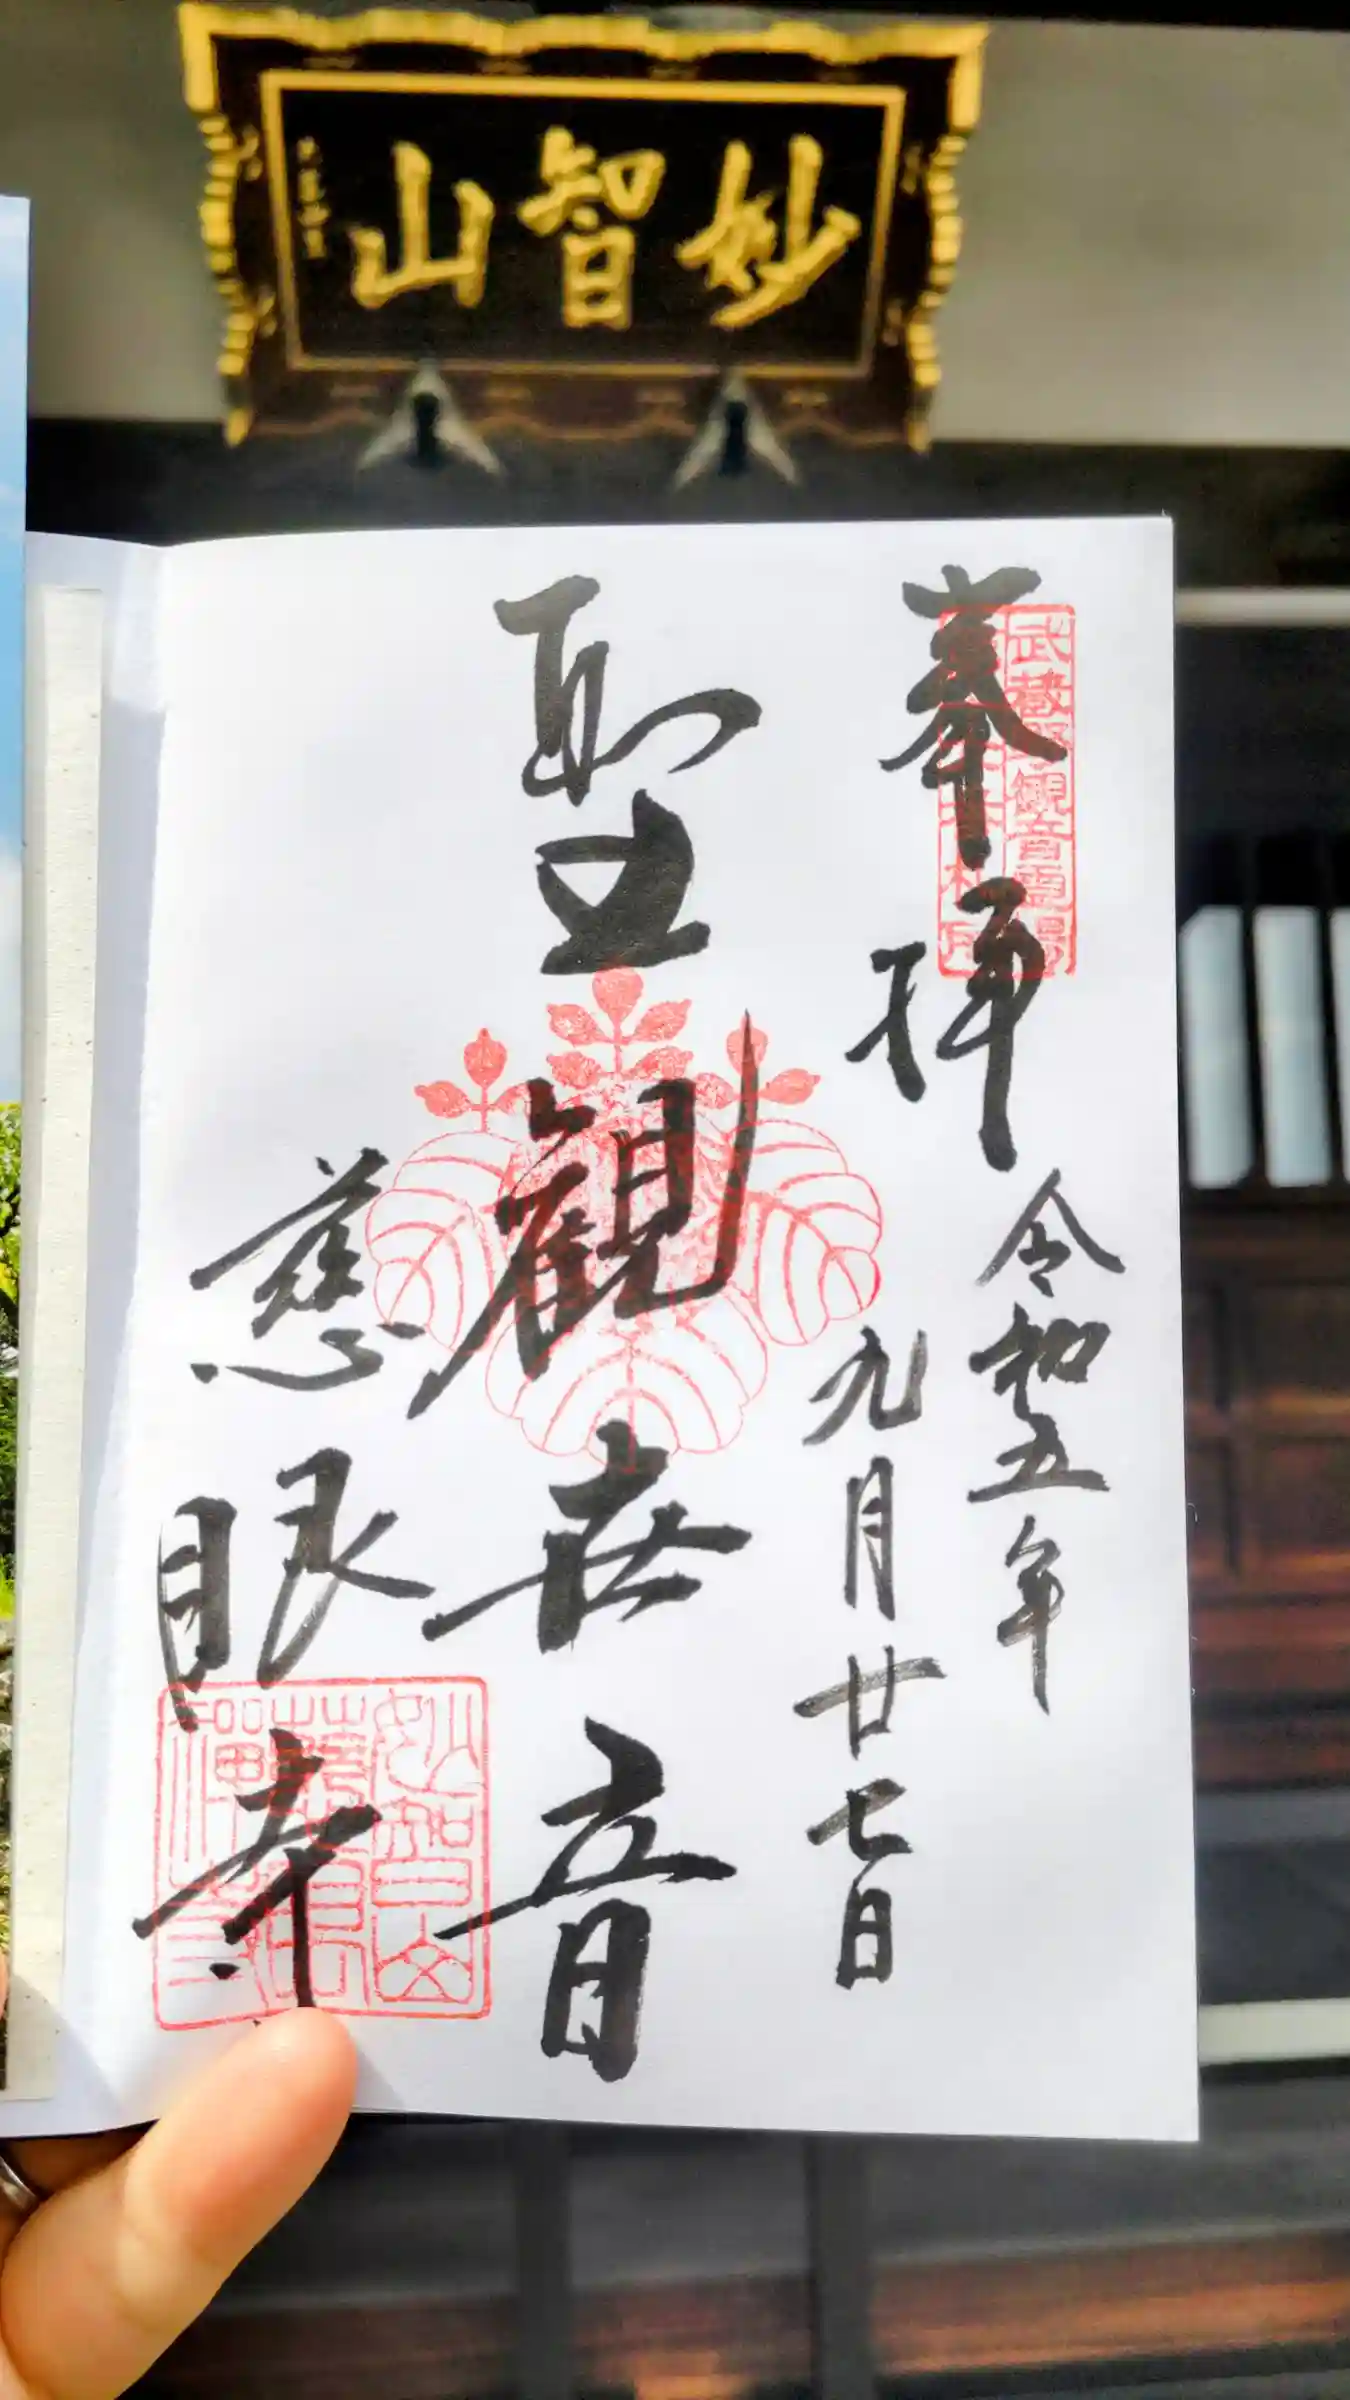 妙智山
奉拝
武蔵野観音霊場
令和五年
九月廿七日
聖観世音
慈眼寺
妙智山
慈眼
禅寺